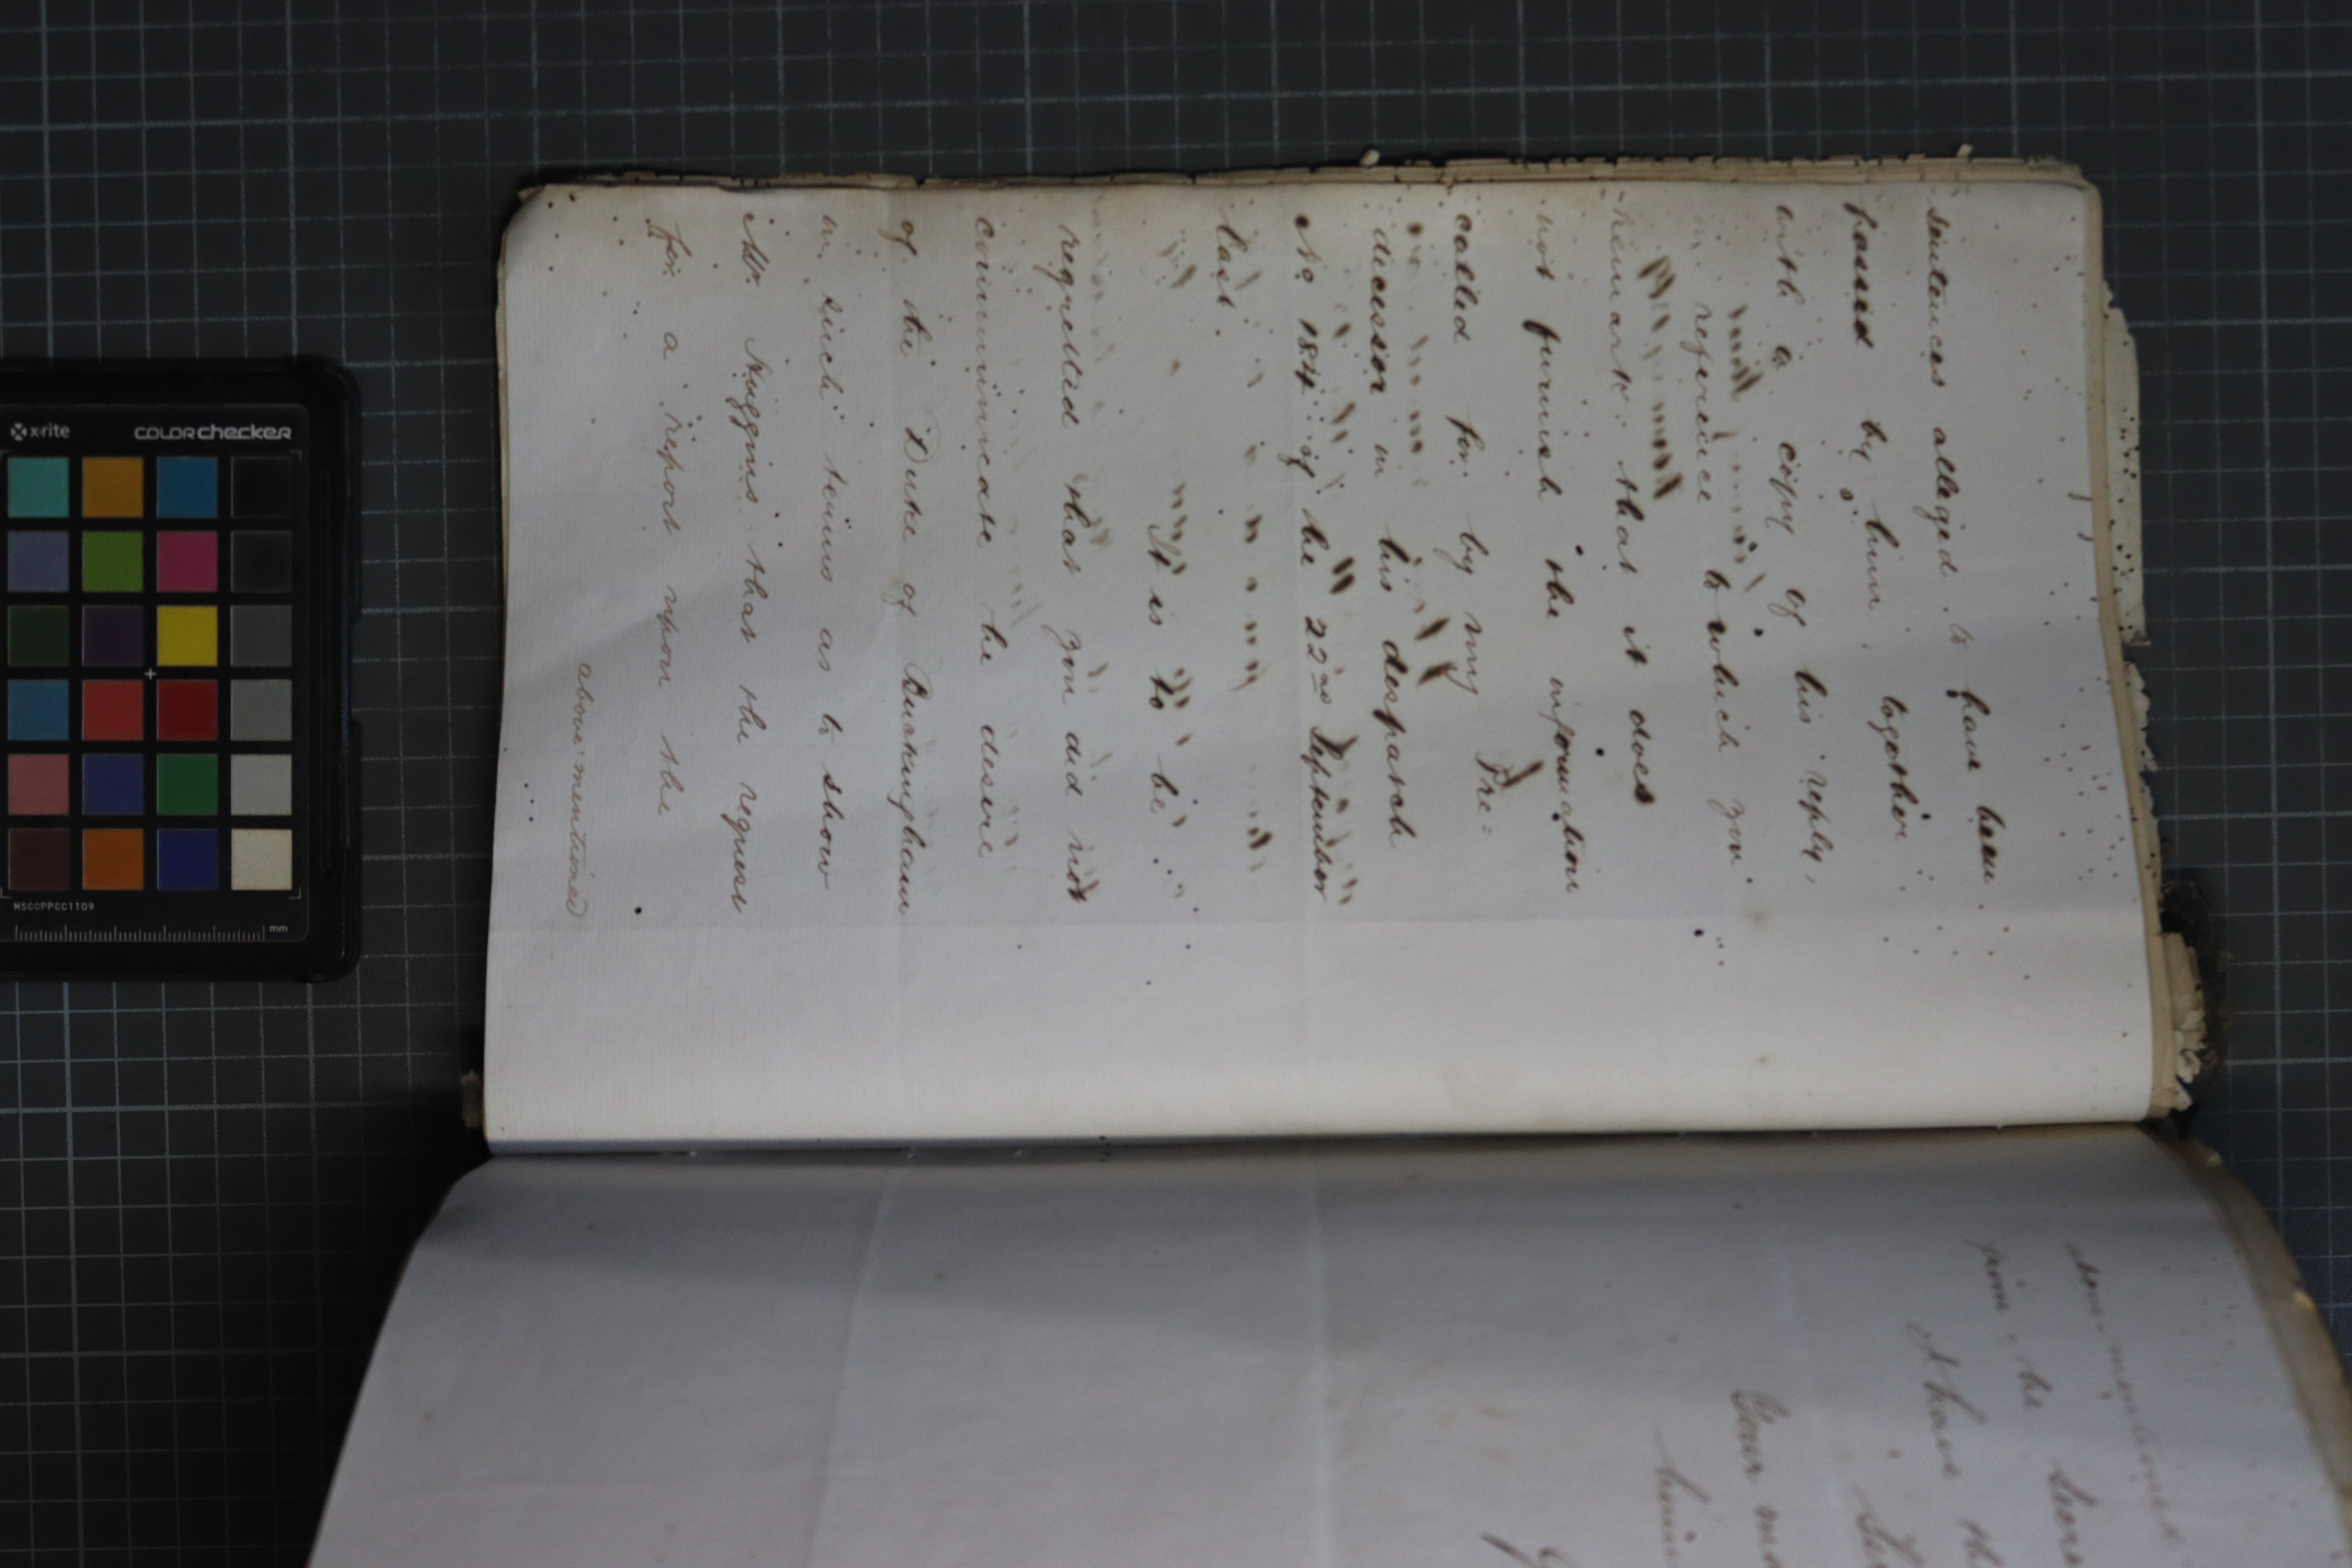 sentences alleged to have been
passed by him, together
with a copy of his reply,
in reference to which you
remark that it does
not furnish the information
called for by my Pre=
decessor in his despatch
No 184 of the 22nd September
last.
It is to be
regretted that you did not
communicate the desire
of the Duke of Buckingham
in such terms as to show
Mr. Huggins that the request
for a report upon the
above-mentioned
above-mentioned
from the
I have th
Your mo
x-rite
colorchecker
MSCCPPCC1109
mm